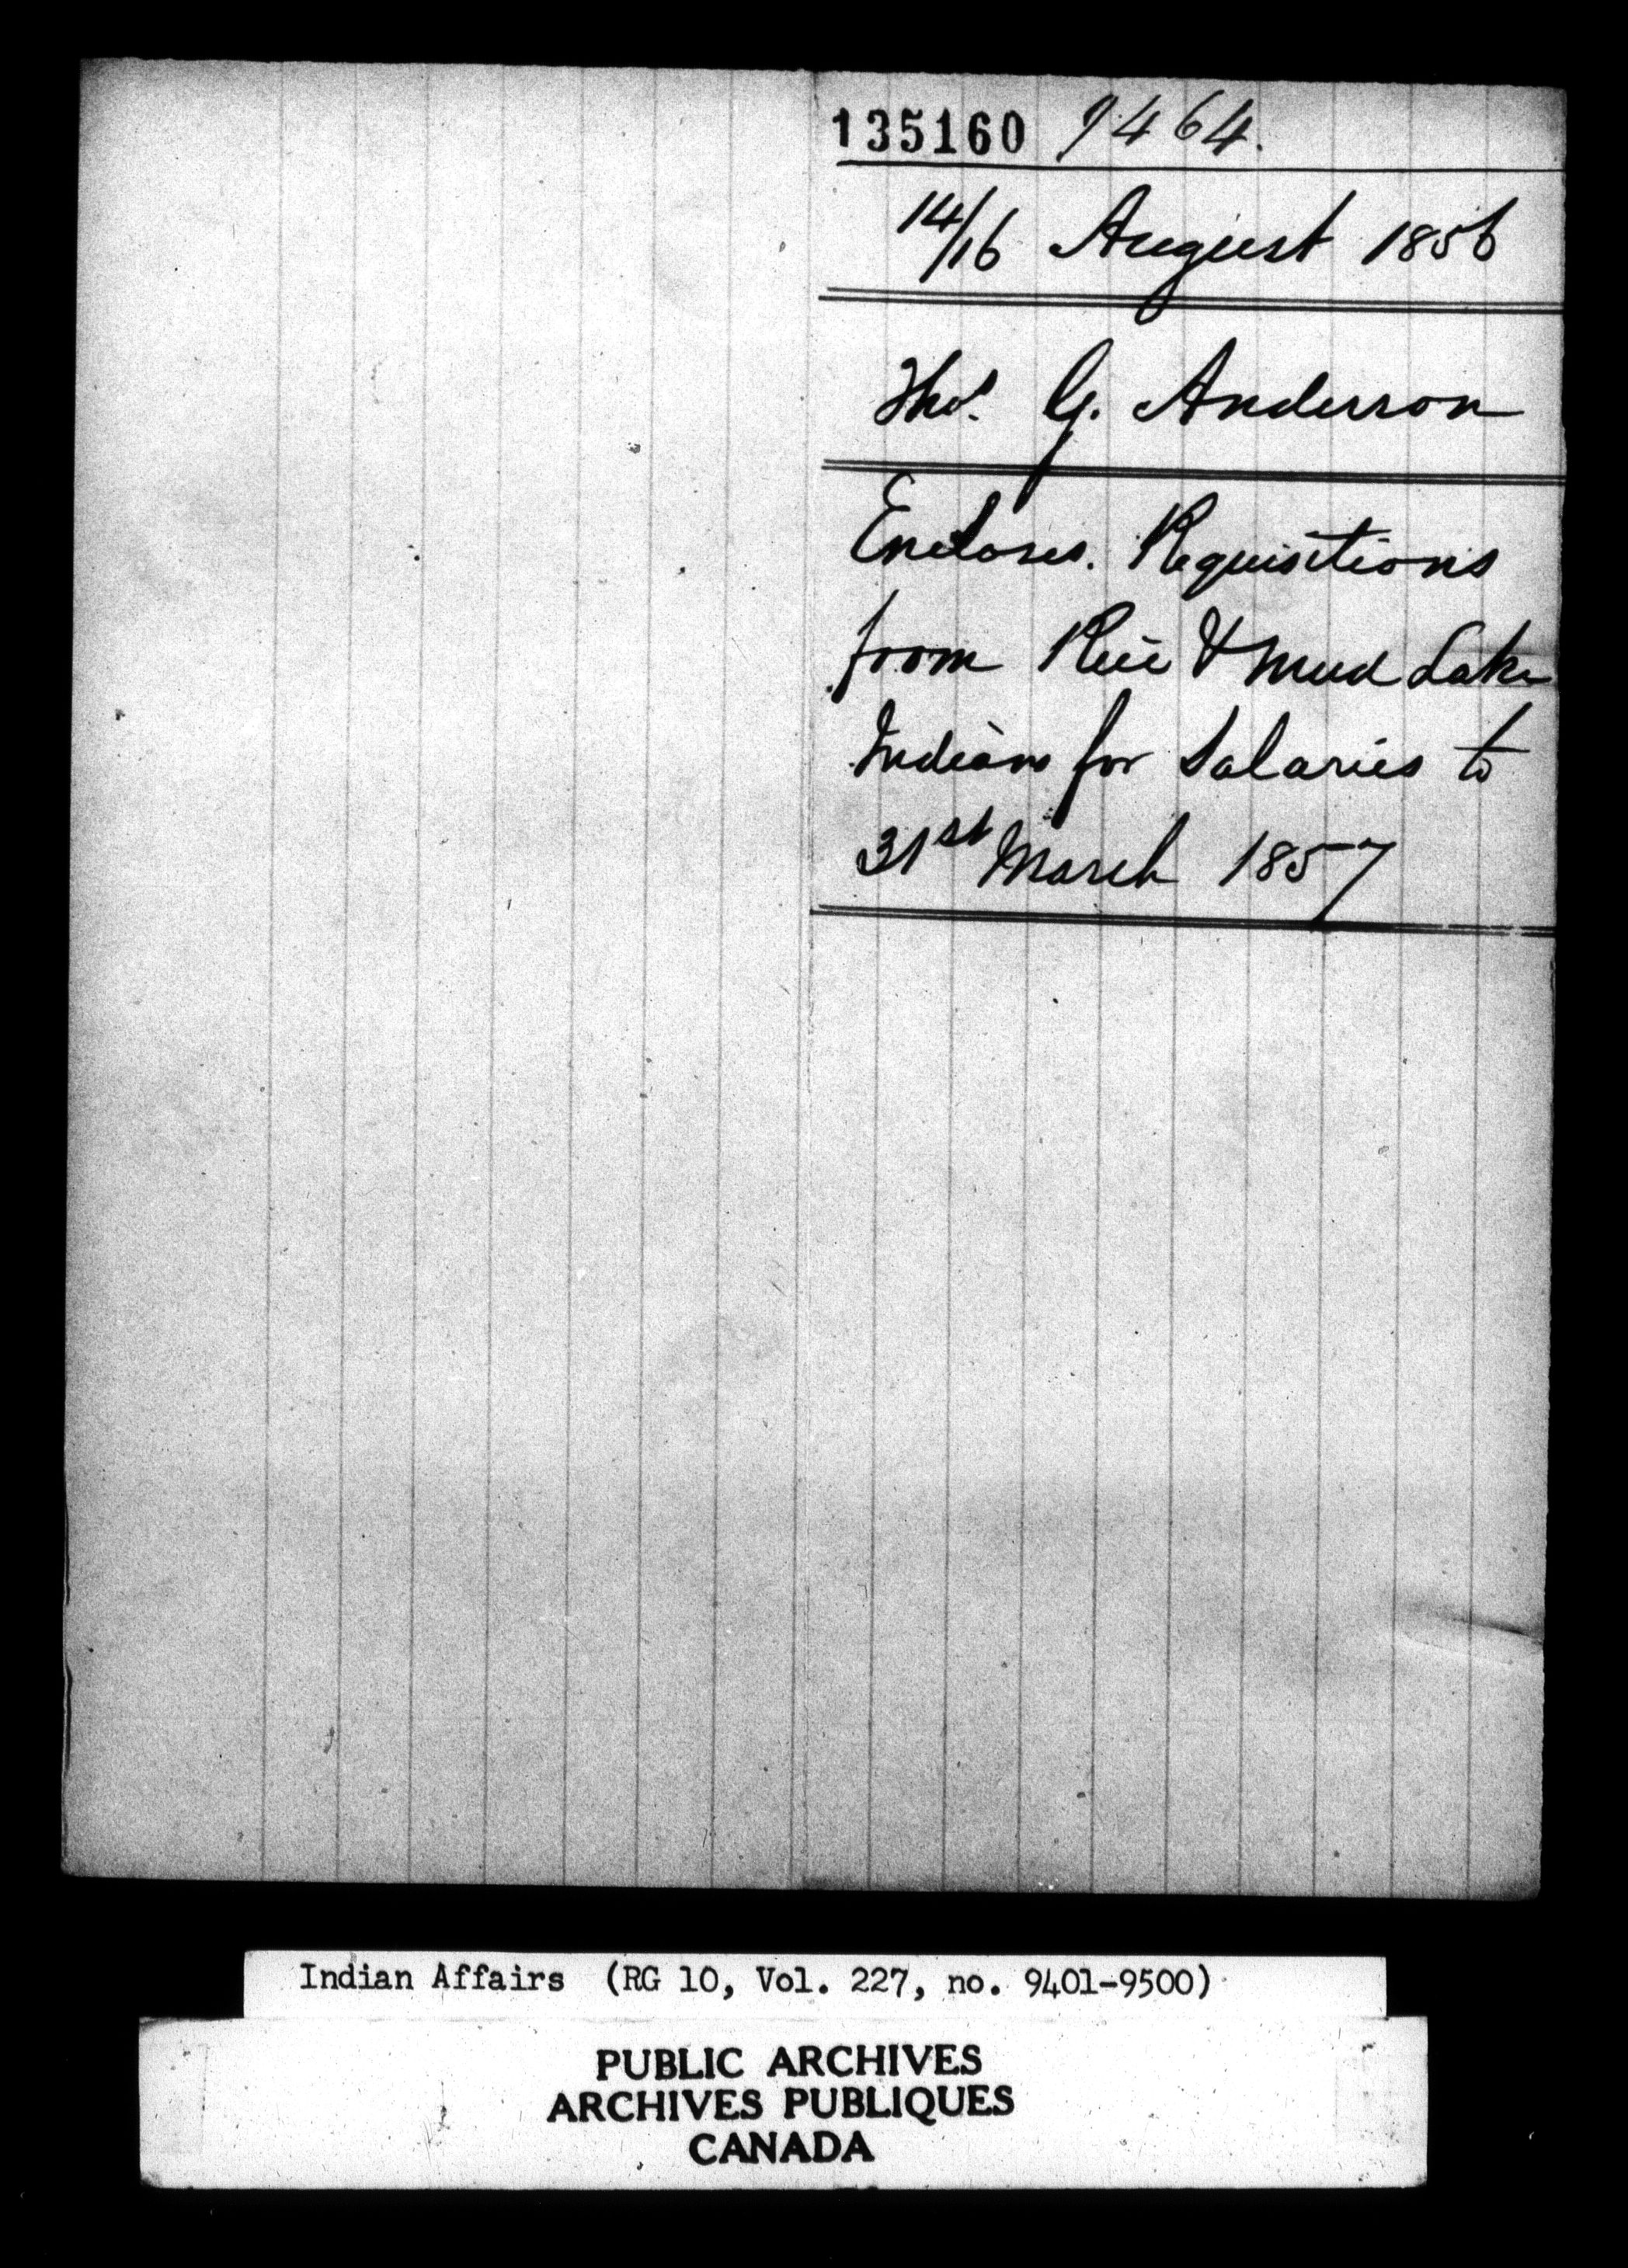 135160 9464.
14/16 August 1856
Thos. G. Anderson
Encloses. Requisitions
from Rice & Mud Lake
Indians for Salaries to
31st March 1857
Indian Affairs (RG 10, Vol. 227, no. 9401-9500)
PUBLIC ARCHIVES
ARCHIVES PUBLIQUES
CANADA